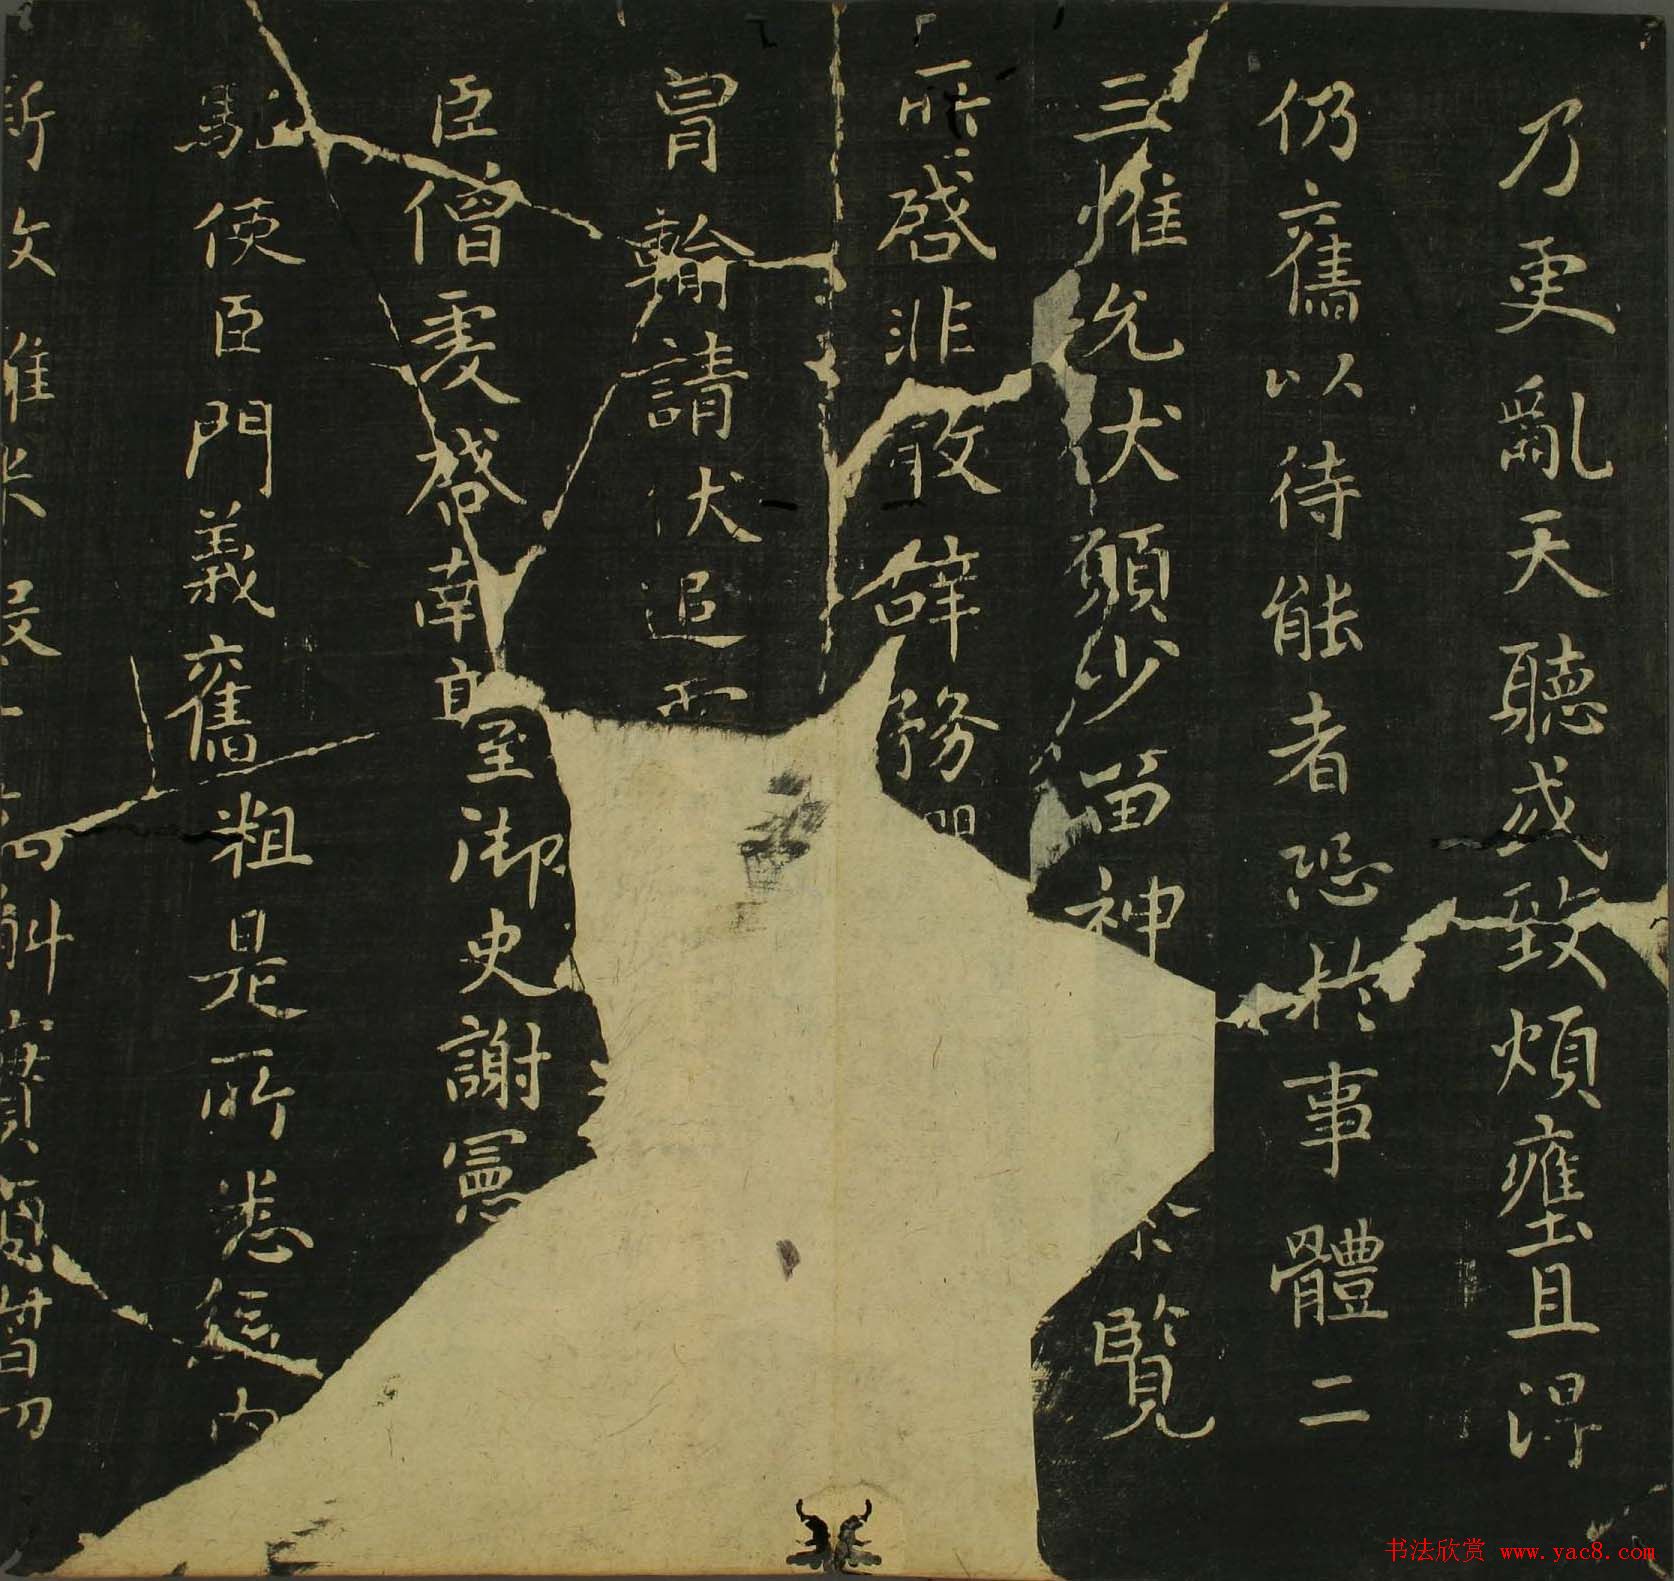 乃更亂天聽或致煩壅且淂
仍舊以待能者恐於事體二
三惟允伏願少留神覽
所啓非敢辞務
冒輸請伏追
臣僧虔啓南臺御史謝憲
使臣門義舊粗是所悉
新文
斛
书法欣赏 www.yac8.com